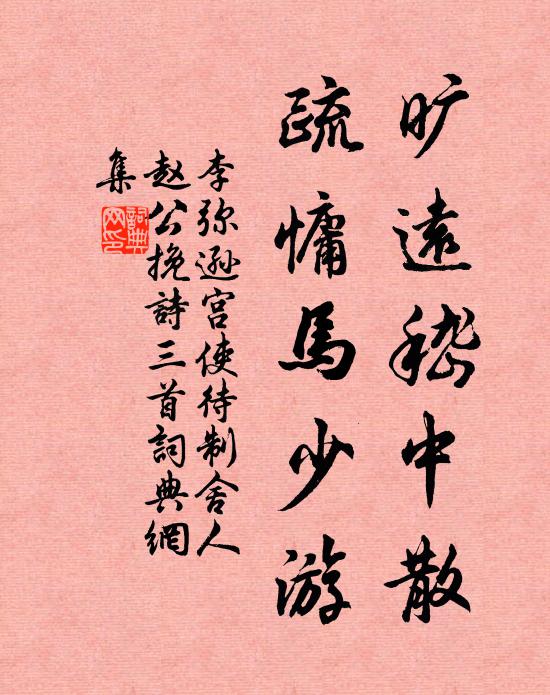 旷遠嵇中散
疏慵馬少游
李弥遜宫使待制舍人
赵公挽詩三首詞典網
集
詞典網印